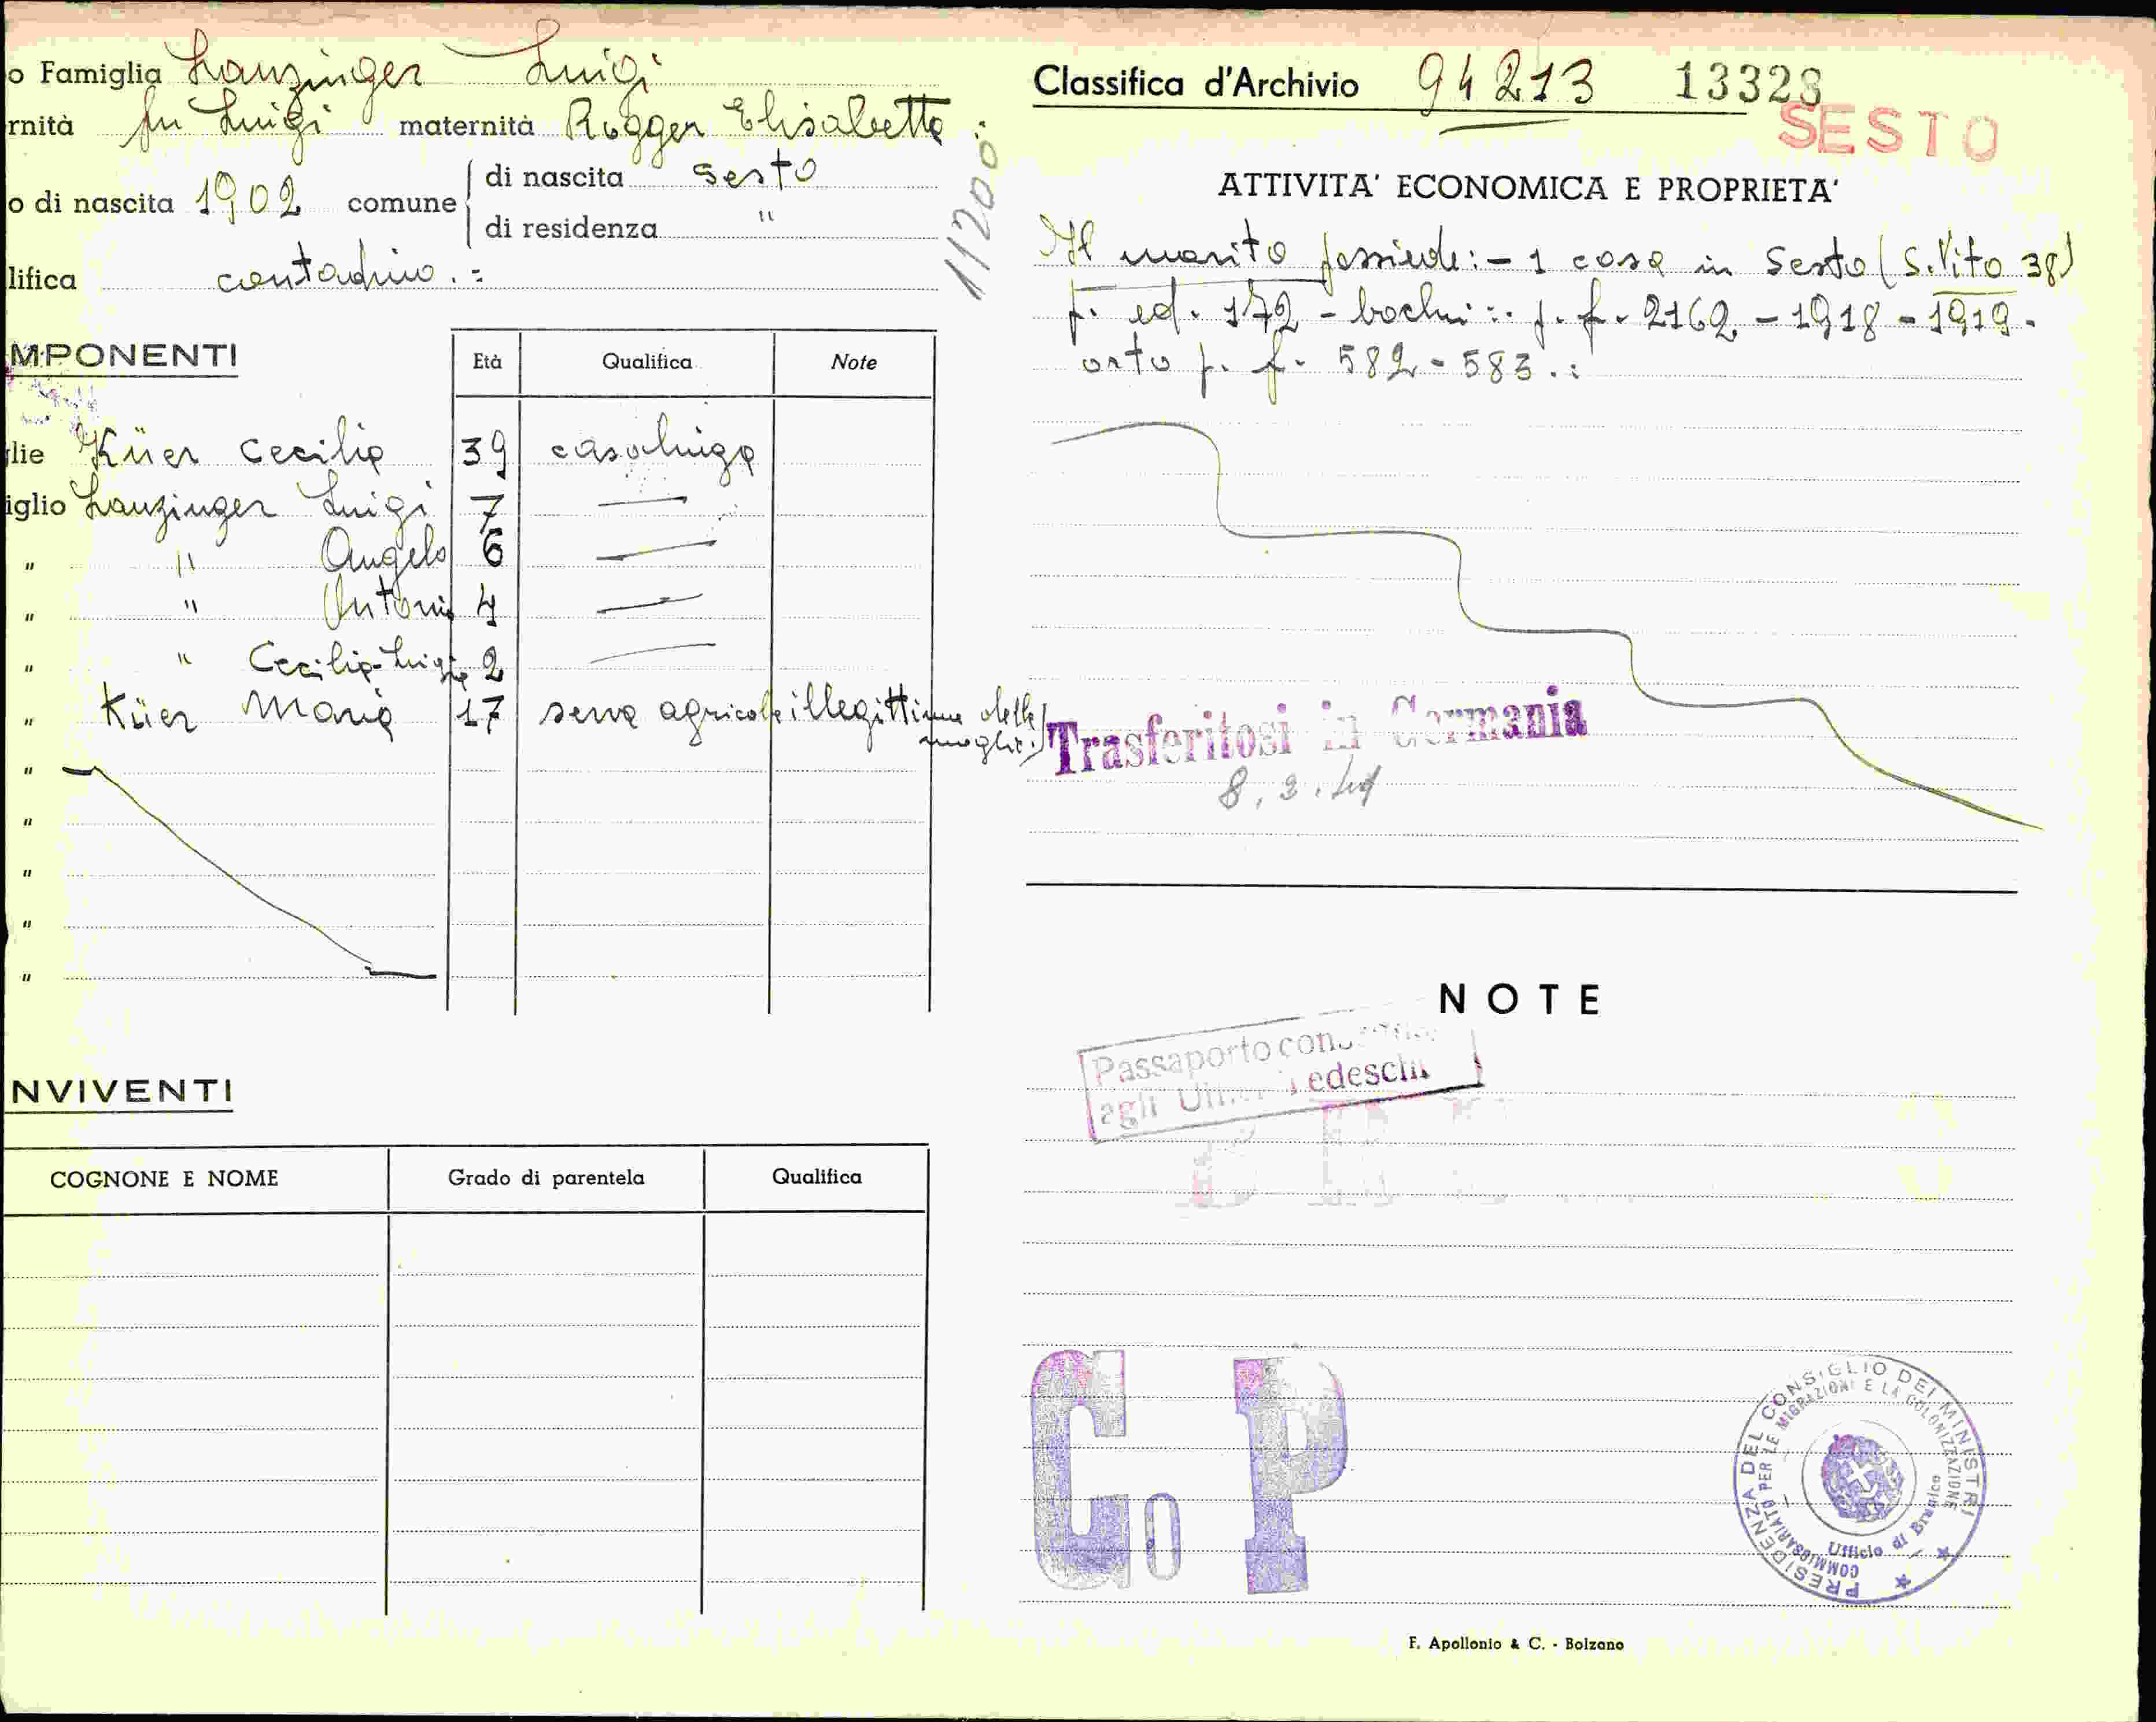 o Famiglia Lanzinger Luigi
rnità fu Luigi maternità Rogger Elisabetta
o di nascita 1902 comune di nascita Sesto
di residenza "
lifica contadino . =
11200
MPONENTI
Età Qualifica Note
lie Küer Cecilia 39 casalinga
iglio Lanzinger Luigi 7 —
" " Angelo 6 —
" " Antonio 4 —
" " Cecilia-Luigia 2 —
" Küer Maria 17 serva agricola illegittima della
moglie)
"
"
"
"
"
NVIVENTI
COGNONE E NOME Grado di parentela Qualifica
Classifica d'Archivio 94213 13323
SESTO
ATTIVITA' ECONOMICA E PROPRIETA'
Il marito possiede:- 1 casa in Sesto (S. Vito 38)
p. ed. 172 - boschi: p. f. 2162 - 1918 - 1919 -
orto p. f. 582 - 583 . :
Trasferitosi in Germania
NOTE
Passaporto
agli Tedeschi
Co P
PRESIDENZA DEL CONSIGLIO DEI MINISTRI
COMMISSARIATO PER LE MIGRAZIONI E LA COLONIZZAZIONE
Ufficio di Brunico
F. Apollonio & C. - Bolzano